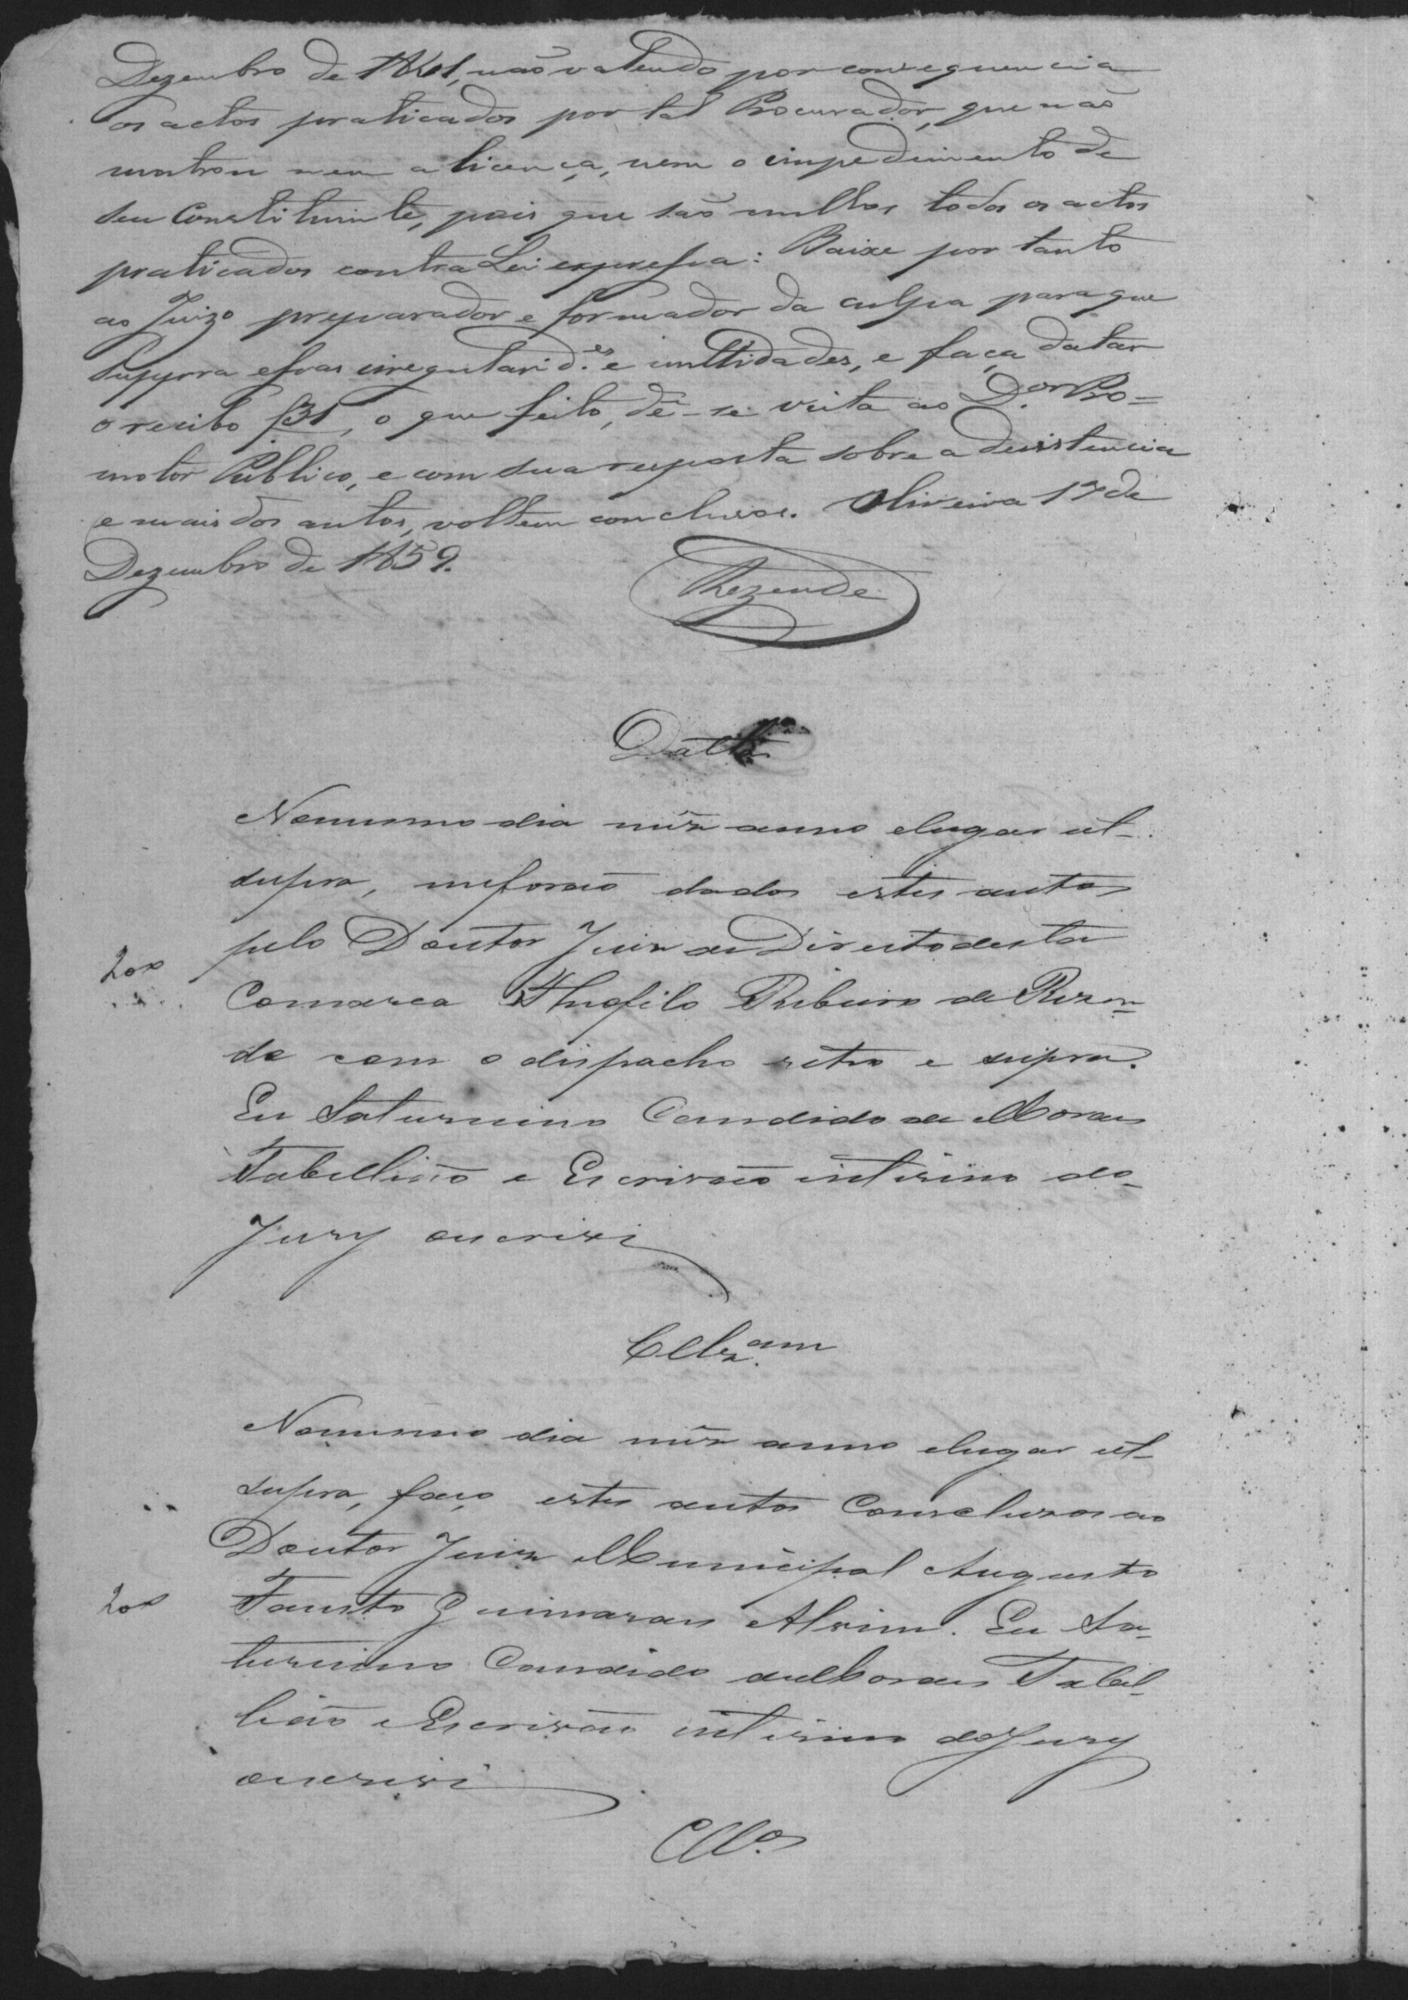 Dezembro de 1841, não valendo por consequencia
os actos praticados por tal Procurador, que não
mostrou nem a licença, nem o impedimento de
seu Constituinte, pois que são nullos todos os actos
praticados contra Lei expressa: Baixe por tanto
ao Juizo preparador e formador da culpa para que
suppra essas irregularid.es e nullidades, e faça datar
o recibo f 31, o que feito, dê-se vista ao D.or Pro=
motor Publico, e com sua resposta sobre a desistencia
e mais dos autos, voltem conclusos. Oliveira 17 de
Dezembro de 1859.
Rezende
Datta
Nomesmo dia mêz anno elugar ut-
supra, meforão dados estes autos
pelo Doutor Juiz de Direito desta
Comarca Theofilo Ribeiro de Rezen-
de com o dispacho retro e supra.
Eu Saturnino Candido de Moraes
Tabellião e Escrivão interino do
Jury oescrivi
Cllz.am
Nomesmo dia mêz anno elugar ut-
supra, faço estes autos Conclusos ao
Doutor Juiz Municipal Augusto
Fausto Guimaraes Alvim. Eu Sa-
turnino Candido de Moraes Tabel-
lião e Escrivão interino do Jury
oescrivi
Cllos